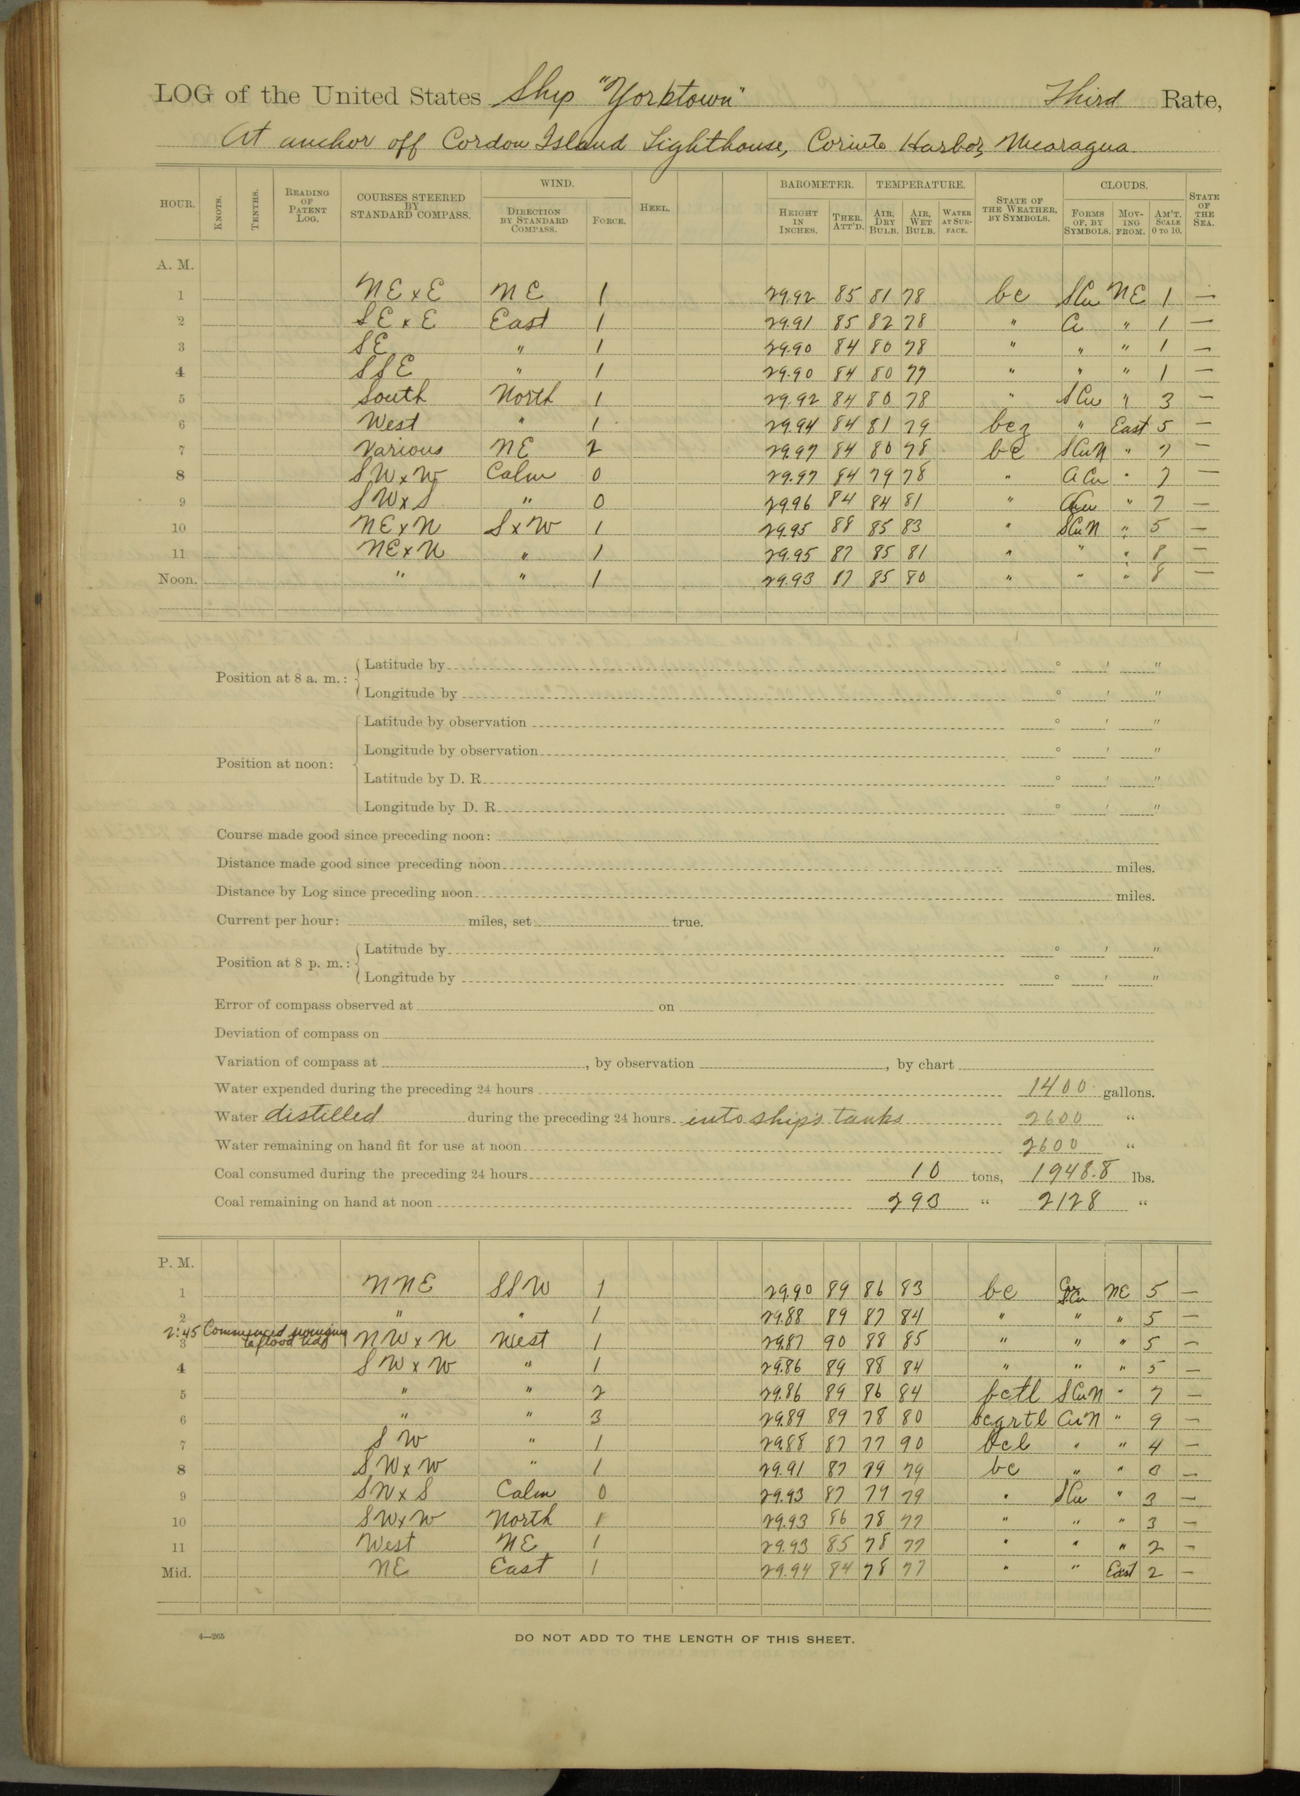 LOG of the United States Ship "Yorktown" Third Rate,
At anchor off Cordon Island Lighthouse, Corinto Harbor, Nicaragua.
HOUR. KNOTS. TENTHS. READING OF PATENT LOG. COURSES STEERED BY STANDARD COMPASS. WIND. DIRECTION BY STANDARD COMPASS. FORCE. HEEL. BAROMETER. HEIGHT IN INCHES. THER. ATT'D. TEMPERATURE. AIR, DRY BULB. AIR, WET BULB. WATER AT SURFACE. STATE OF THE WEATHER, BY SYMBOLS. CLOUDS. FORMS OF, BY SYMBOLS. MOVING FROM. AM'T. SCALE 0 TO 10. STATE OF THE SEA.
A. M.
1 NE x E NE 1 29.92 85 81 78 bc SCu NE 1 —
2 SE x E East 1 29.91 85 82 78 " C " 1 —
3 SE " 1 29.90 84 80 78 " " " 1 —
4 SSE " 1 29.90 84 80 77 " " " 1 —
5 South North 1 29.92 84 80 78 " SCu " 3 —
6 West " 1 29.94 84 81 79 bcz " East 5 —
7 Various NE 2 29.97 84 80 78 bc SCuN " 7 —
8 SW x W Calm 0 29.97 84 79 78 " CCu " 7 —
9 SW x S " 0 29.96 84 84 81 " CCu " 7 —
10 NE x N S x W 1 29.95 88 85 83 " SCuN " 5 —
11 NE x N " 1 29.95 87 85 81 " " " 8 —
Noon. " " 1 29.93 87 85 80 " " " 8 —
Position at 8 a. m.: Latitude by ° ' "
Longitude by ° ' "
Position at noon: Latitude by observation ° ' "
Longitude by observation ° ' "
Latitude by D. R. ° ' "
Longitude by D. R. ° ' "
Course made good since preceding noon:
Distance made good since preceding noon miles.
Distance by Log since preceding noon miles.
Current per hour: miles, set true.
Position at 8 p. m.: Latitude by ° ' "
Longitude by ° ' "
Error of compass observed at on
Deviation of compass on
Variation of compass at , by observation , by chart
Water expended during the preceding 24 hours 1400 gallons.
Water distilled during the preceding 24 hours into ship's tanks 2600 "
Water remaining on hand fit for use at noon 2600 "
Coal consumed during the preceding 24 hours 10 tons, 1948.8 lbs.
Coal remaining on hand at noon 293 " 2128 "
P. M.
1 NNE SSW 1 29.90 89 86 83 bc SCu NE 5 —
2 " " 1 29.88 89 87 84 " " " 5 —
2:45 Commenced swinging to flood tide
3 NW x N West 1 29.87 90 88 85 " " " 5 —
4 SW x W " 1 29.86 89 88 84 " " " 5 —
5 " " 2 29.86 89 86 84 bctl SCuN " 7 —
6 " " 3 29.89 89 78 80 bcqrtl CuN " 9 —
7 SW " 1 29.88 87 77 90 bcl " " 4 —
8 SW x W " 1 29.91 87 79 79 bc " " —
9 SW x S Calm 0 29.93 87 79 79 " SCu " 3 —
10 SW x W North 1 29.93 86 78 77 " " " 3 —
11 West NE 1 29.93 85 78 77 " " " 2 —
Mid. NE East 1 29.94 84 78 77 " " East 2 —
4—265
DO NOT ADD TO THE LENGTH OF THIS SHEET.